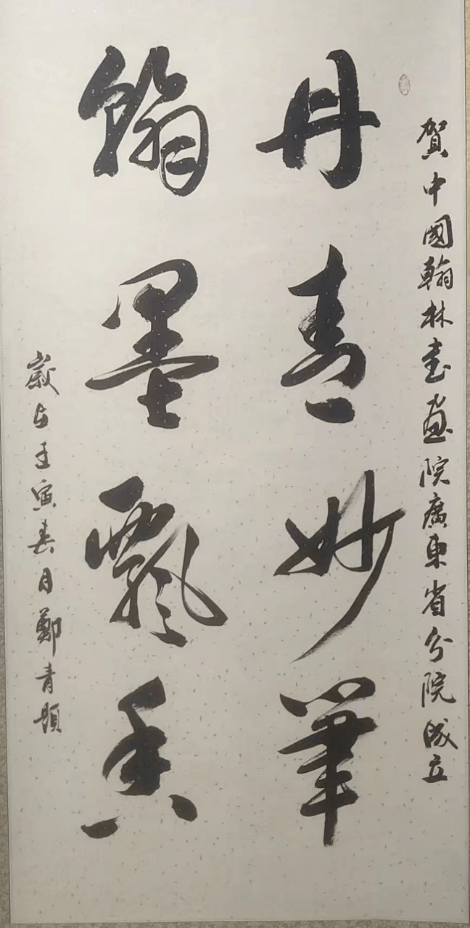 賀中國翰林書畫院廣東省分院成立
丹青妙筆
翰墨飄香
歲在壬寅春月鄭青題